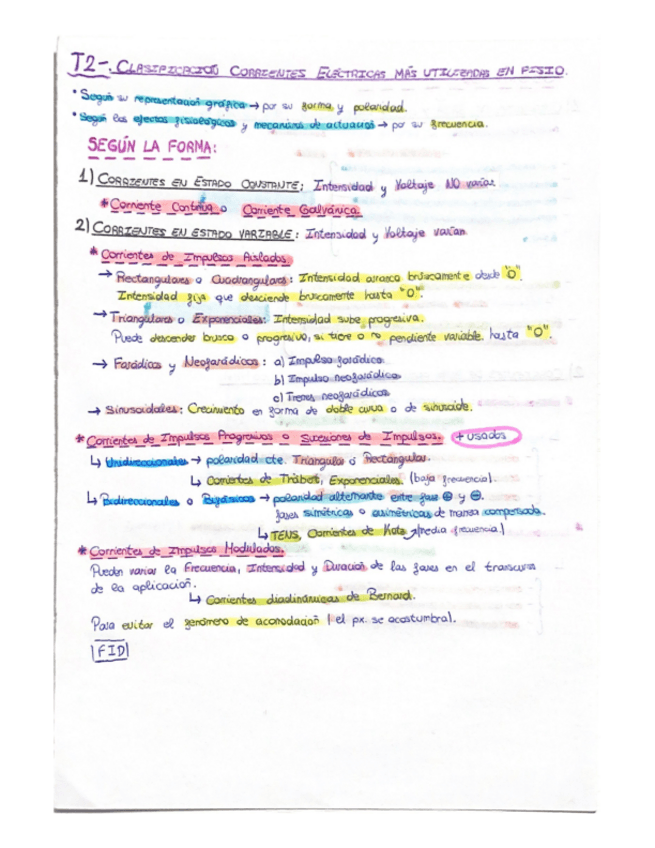 T2-. CLASIFICACIÓN CORRIENTES ELÉCTRICAS MÁS UTILIZADAS EN FISIO.
· Según su representación gráfica → por su forma y polaridad.
· Según los efectos fisiológicos y mecanismo de actuación → por su frecuencia.
SEGÚN LA FORMA:
1) CORRIENTES EN ESTADO CONSTANTE: Intensidad y Voltaje NO varían.
* Corriente Continua o Corriente Galvánica.
2) CORRIENTES EN ESTADO VARIABLE: Intensidad y Voltaje varían
* Corrientes de Impulsos Aislados
→ Rectangulares o Cuadrangulares: Intensidad arranca bruscamente desde "0".
Intensidad fija que desciende bruscamente hasta "0".
→ Triangulares o Exponenciales: Intensidad sube progresiva.
Puede descender brusca o progresivo, si tiene o no pendiente variable. hasta "0".
→ Farádicas y Neofarádicas: a) Impulso farádico
b) Impulso neofarádico
c) Trenes neofarádicos
→ Sinusoidales: Crecimiento en forma de doble curva o de sinusoide.
* Corrientes de Impulsos Programas o Sucesiones de Impulsos. + usados
↳ Unidireccionales → polaridad cte. Triangular ó Rectangular.
↳ Corrientes de Träbert, Exponenciales. (baja frecuencia).
↳ Bidireccionales o Bifásicas → polaridad alternante entre fase ⊕ y ⊖.
fases simétricas o asimétricas de manera compensada.
↳ TENS, Corrientes de Kotz (media frecuencia)
* Corrientes de Impulsos Modulados.
Pueden variar la Frecuencia, Intensidad y Duración de las fases en el transcurso
de la aplicación.
↳ Corrientes diadinámicas de Bernard.
Para evitar el fenómeno de acomodación (el px. se acostumbra).
FID